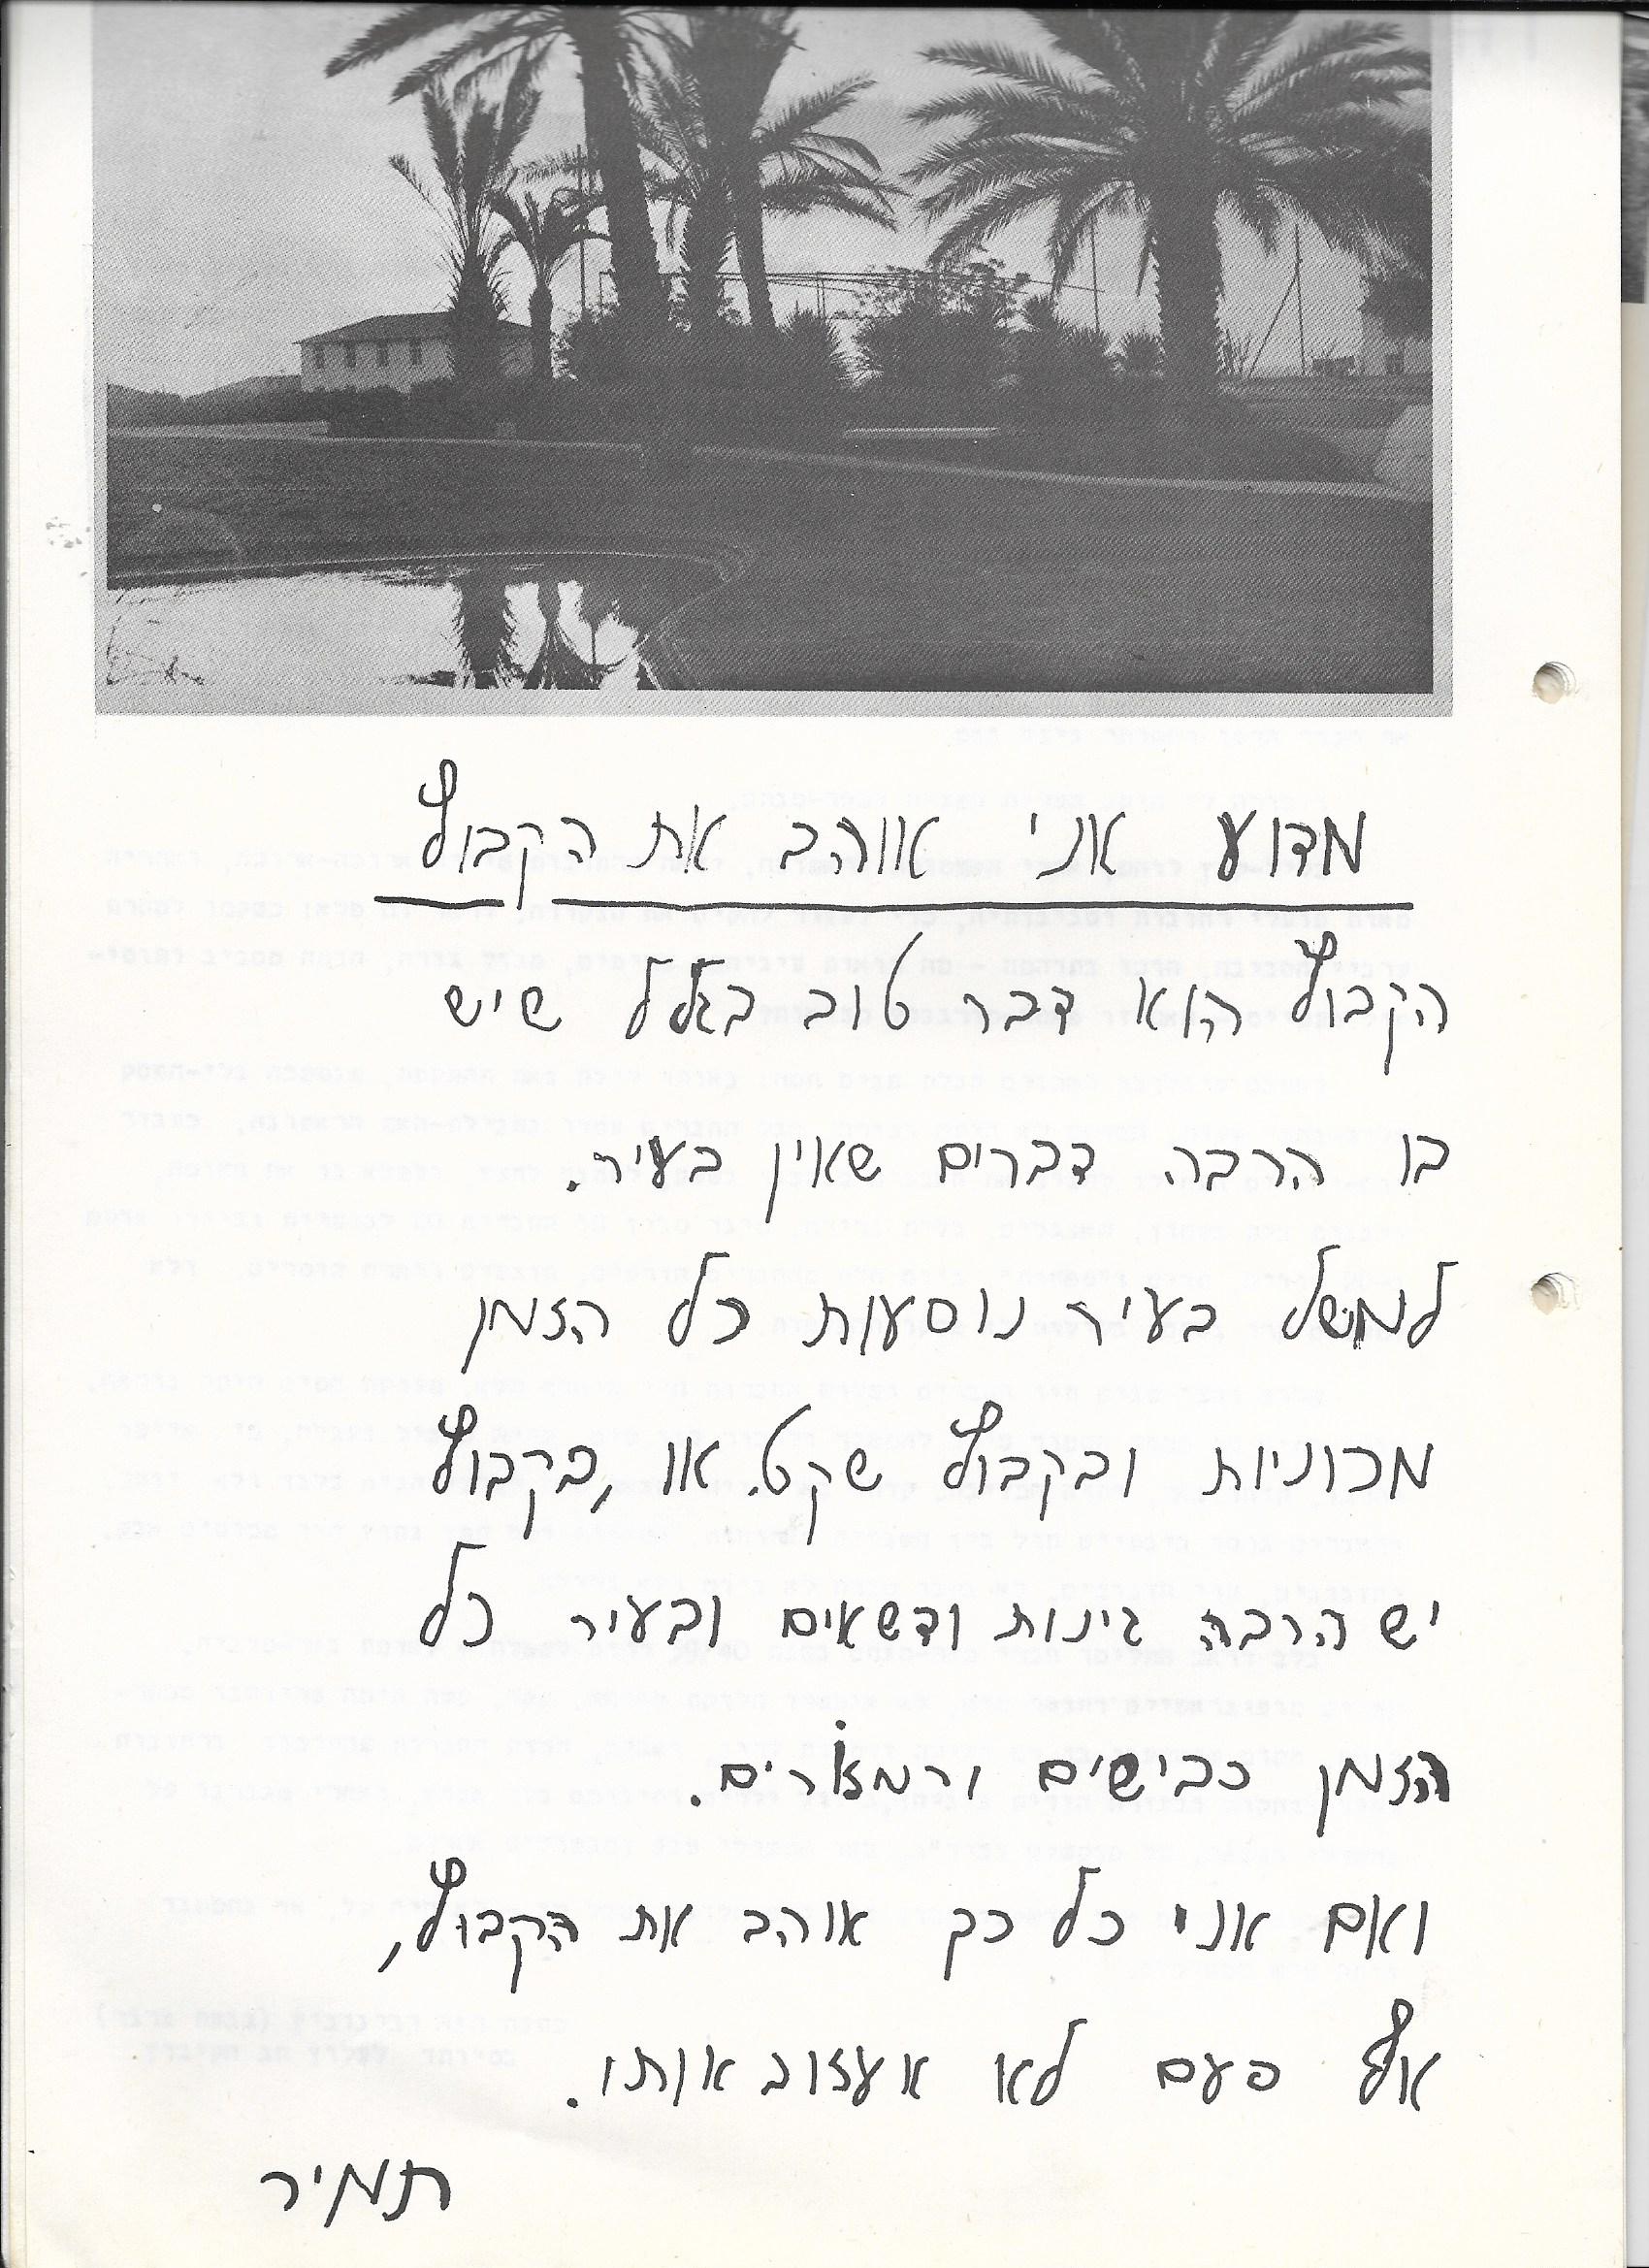 מדוע אני אוהב את הקבוץ
הקבוץ הוא דבר טוב בגלל שיש
בו הרבה דברים שאין בעיר.
למשל בעיר נוסעות כל הזמן
מכוניות ובקבוץ שקט. או, בקבוץ
יש הרבה גינות ודשאים ובעיר כל
הזמן כבישים ורמזוֹרים.
ואם אני כל כך אוהב את הקבוץ,
אף פעם לא אעזוב אותו.
תמיר